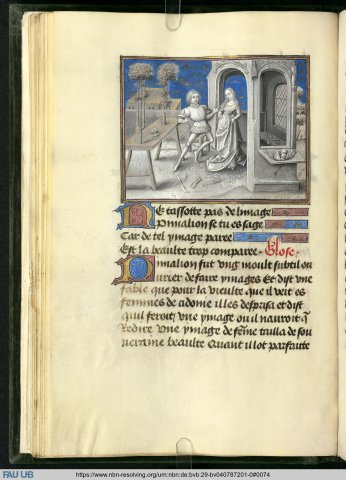 Ne tassotte pas de lymage
Pimalion se tu es sage
Car de tel ymage paree
Est la beaulte trop comparee . Glose .
Pimalion fut ung moult subtil ou
urier de faire ymages Et dist une
fable que pour la vieulte que il veit es
femmes de adome il les desprisa et dist
quil feroit une ymage ou il nauroit q
Redire Une ymage de feme tailla de sou
ueraine beaulte Quant il lot parfaitte
FAU UB
https://www.nbn-resolving.org/urn:nbn:de:bvb:29-bv040787201-0#0074